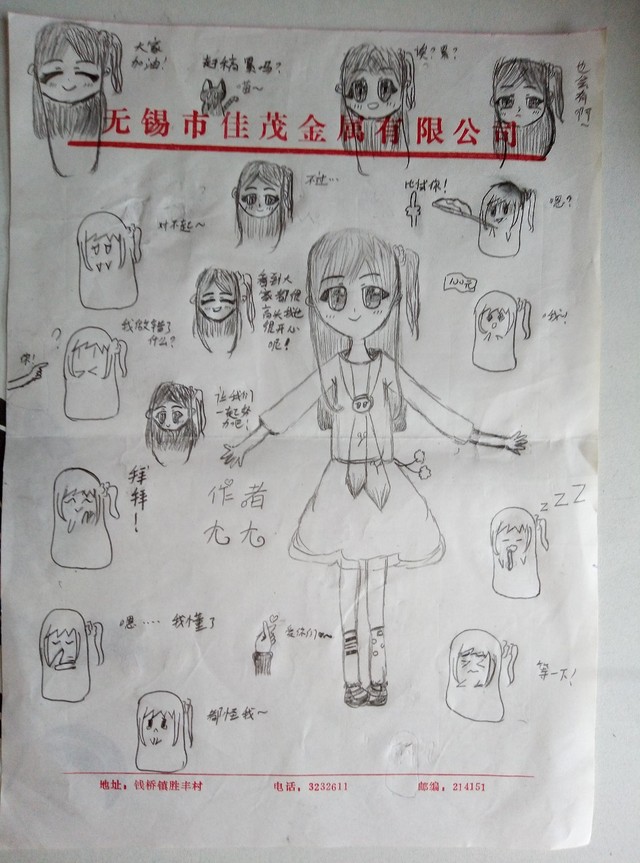 大家
加油！
赶稿累吗？
喵～
诶？累？
也会有啊～
无锡市佳茂金属有限公司
不过…
比试你！
嗯？
对不起～
看到人
家都很
高兴我也
很开心
呢！
我做错了
什么？
？
你！
让我们
一起努
力吧！
拜
拜！
作者
尢尢
zZZ
嗯……我懂了
爱你们~
等一下！
都怪我～
地址：钱桥镇胜丰村
电话：3232611
邮编：214151